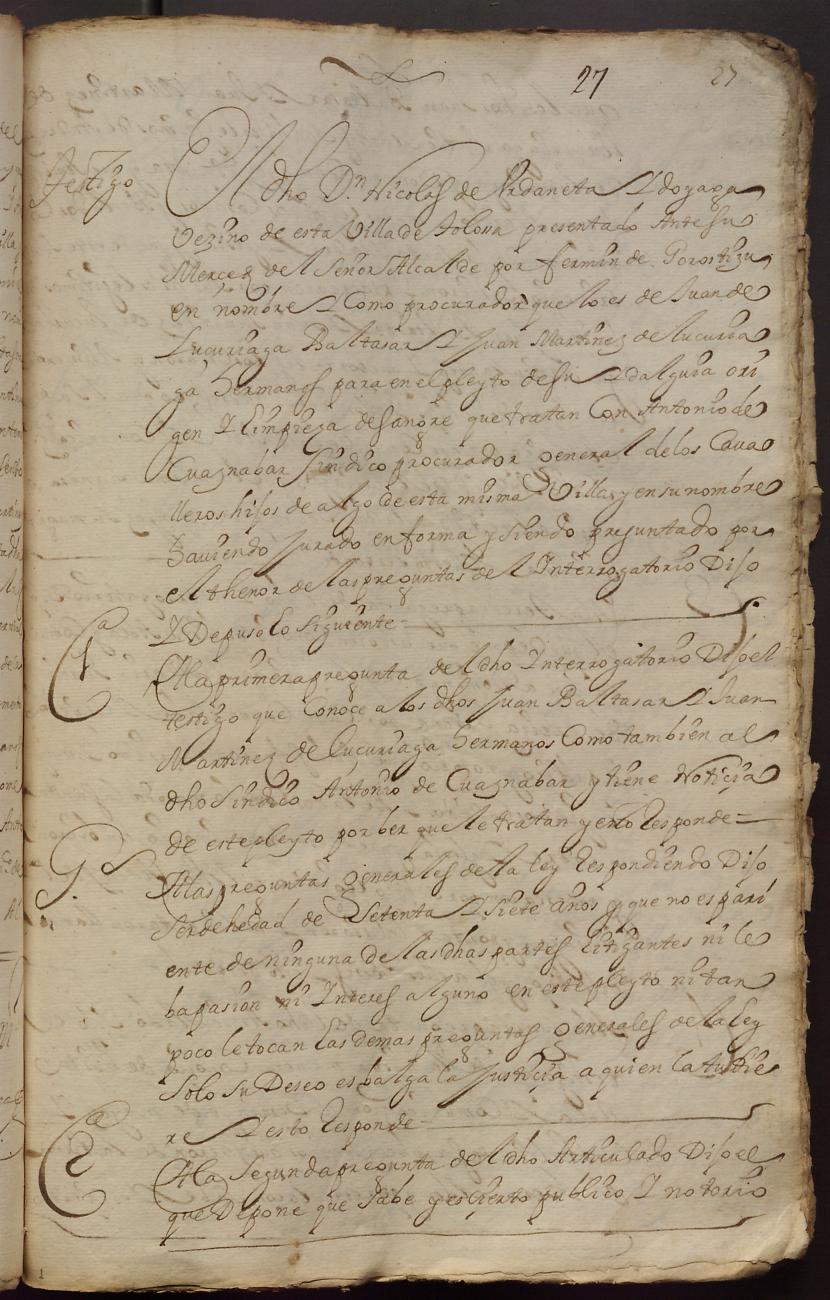 27 27
Testigo
El dho Dn. Nicolas de Vrdaneta Y doyaga
Vezino de esta Villa de Tolossa presentado Ante su
Merced del Señor Alcalde por fermin de Gorostizu
en nombre Y Como procurador que lo es de Juan de
Lucuriaga Baltasar Y Juan Martinez de lucuria
ga hermanos para en el pleyto de su Ydalguia ori
gen Y limpieza de sangre que tratan Con Antonio de
Cuaznabar Sindico procurador general de los Cava
lleros hijos de algo de esta misma Villa y en su nombre
haviendo Jurado en forma y siendo preguntado por
el thenor de las preguntas del Interrogatorio Dijo
Y Depuso lo siguiente
1a
A la primera pregunta del dho Interrogatorio Dijo el
testigo que Conoce a los dhos Juan Baltasar Y Juan
Martinez de Lucuriaga hermanos Como tambien al
dho Sindico Antonio de Cuaznabar y tiene Noticia
de este pleyto por ber que le tratan y esto Responde =
Gs.
A las preguntas generales de la ley Respondiendo Dijo
ser de hedad de Setenta Y siete años y que no es pari
ente de ninguna de las dhas partes litigantes ni le
ba pasion ni Interes alguno en este pleyto ni tan
poco le tocan las demas preguntas generales de la ley
Solo su Deseo es balga la Justicia a quien la tubie
re Y esto Responde
2a
A la Segunda pregunta del dho Articulado Dijo el
que Depone que sabe y es cierto publico Y notorio